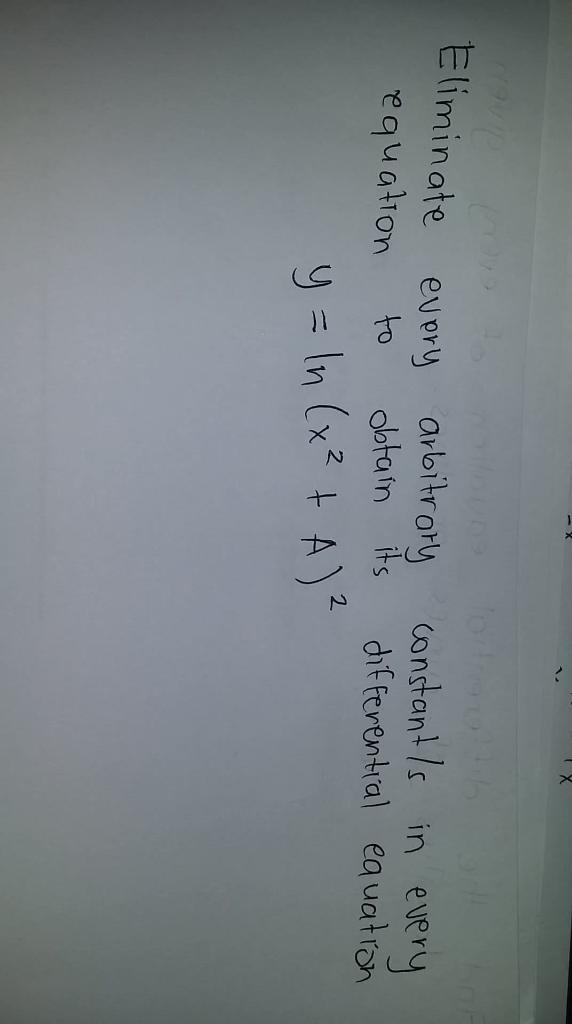 Eliminate every arbitrary constant/s in every
equation to obtain its differential equation
y = ln (x² + A)²